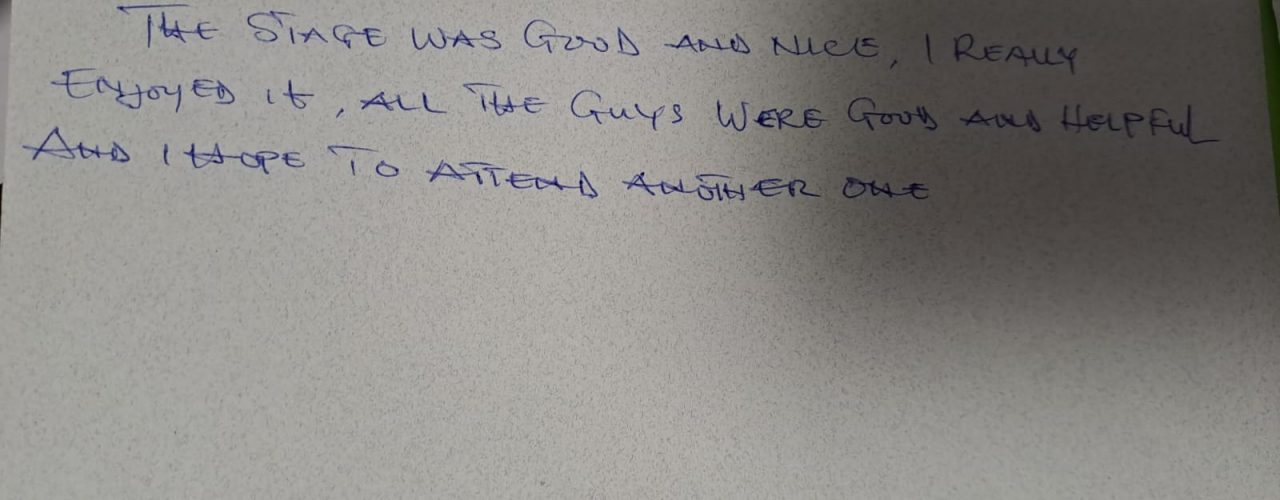 THE STAGE WAS GOOD AND NICE, I REALLY
ENJOYED it, ALL THE GUYS WERE GOOD AND HELPFUL
AND I HOPE TO ATTEND ANOTHER ONE